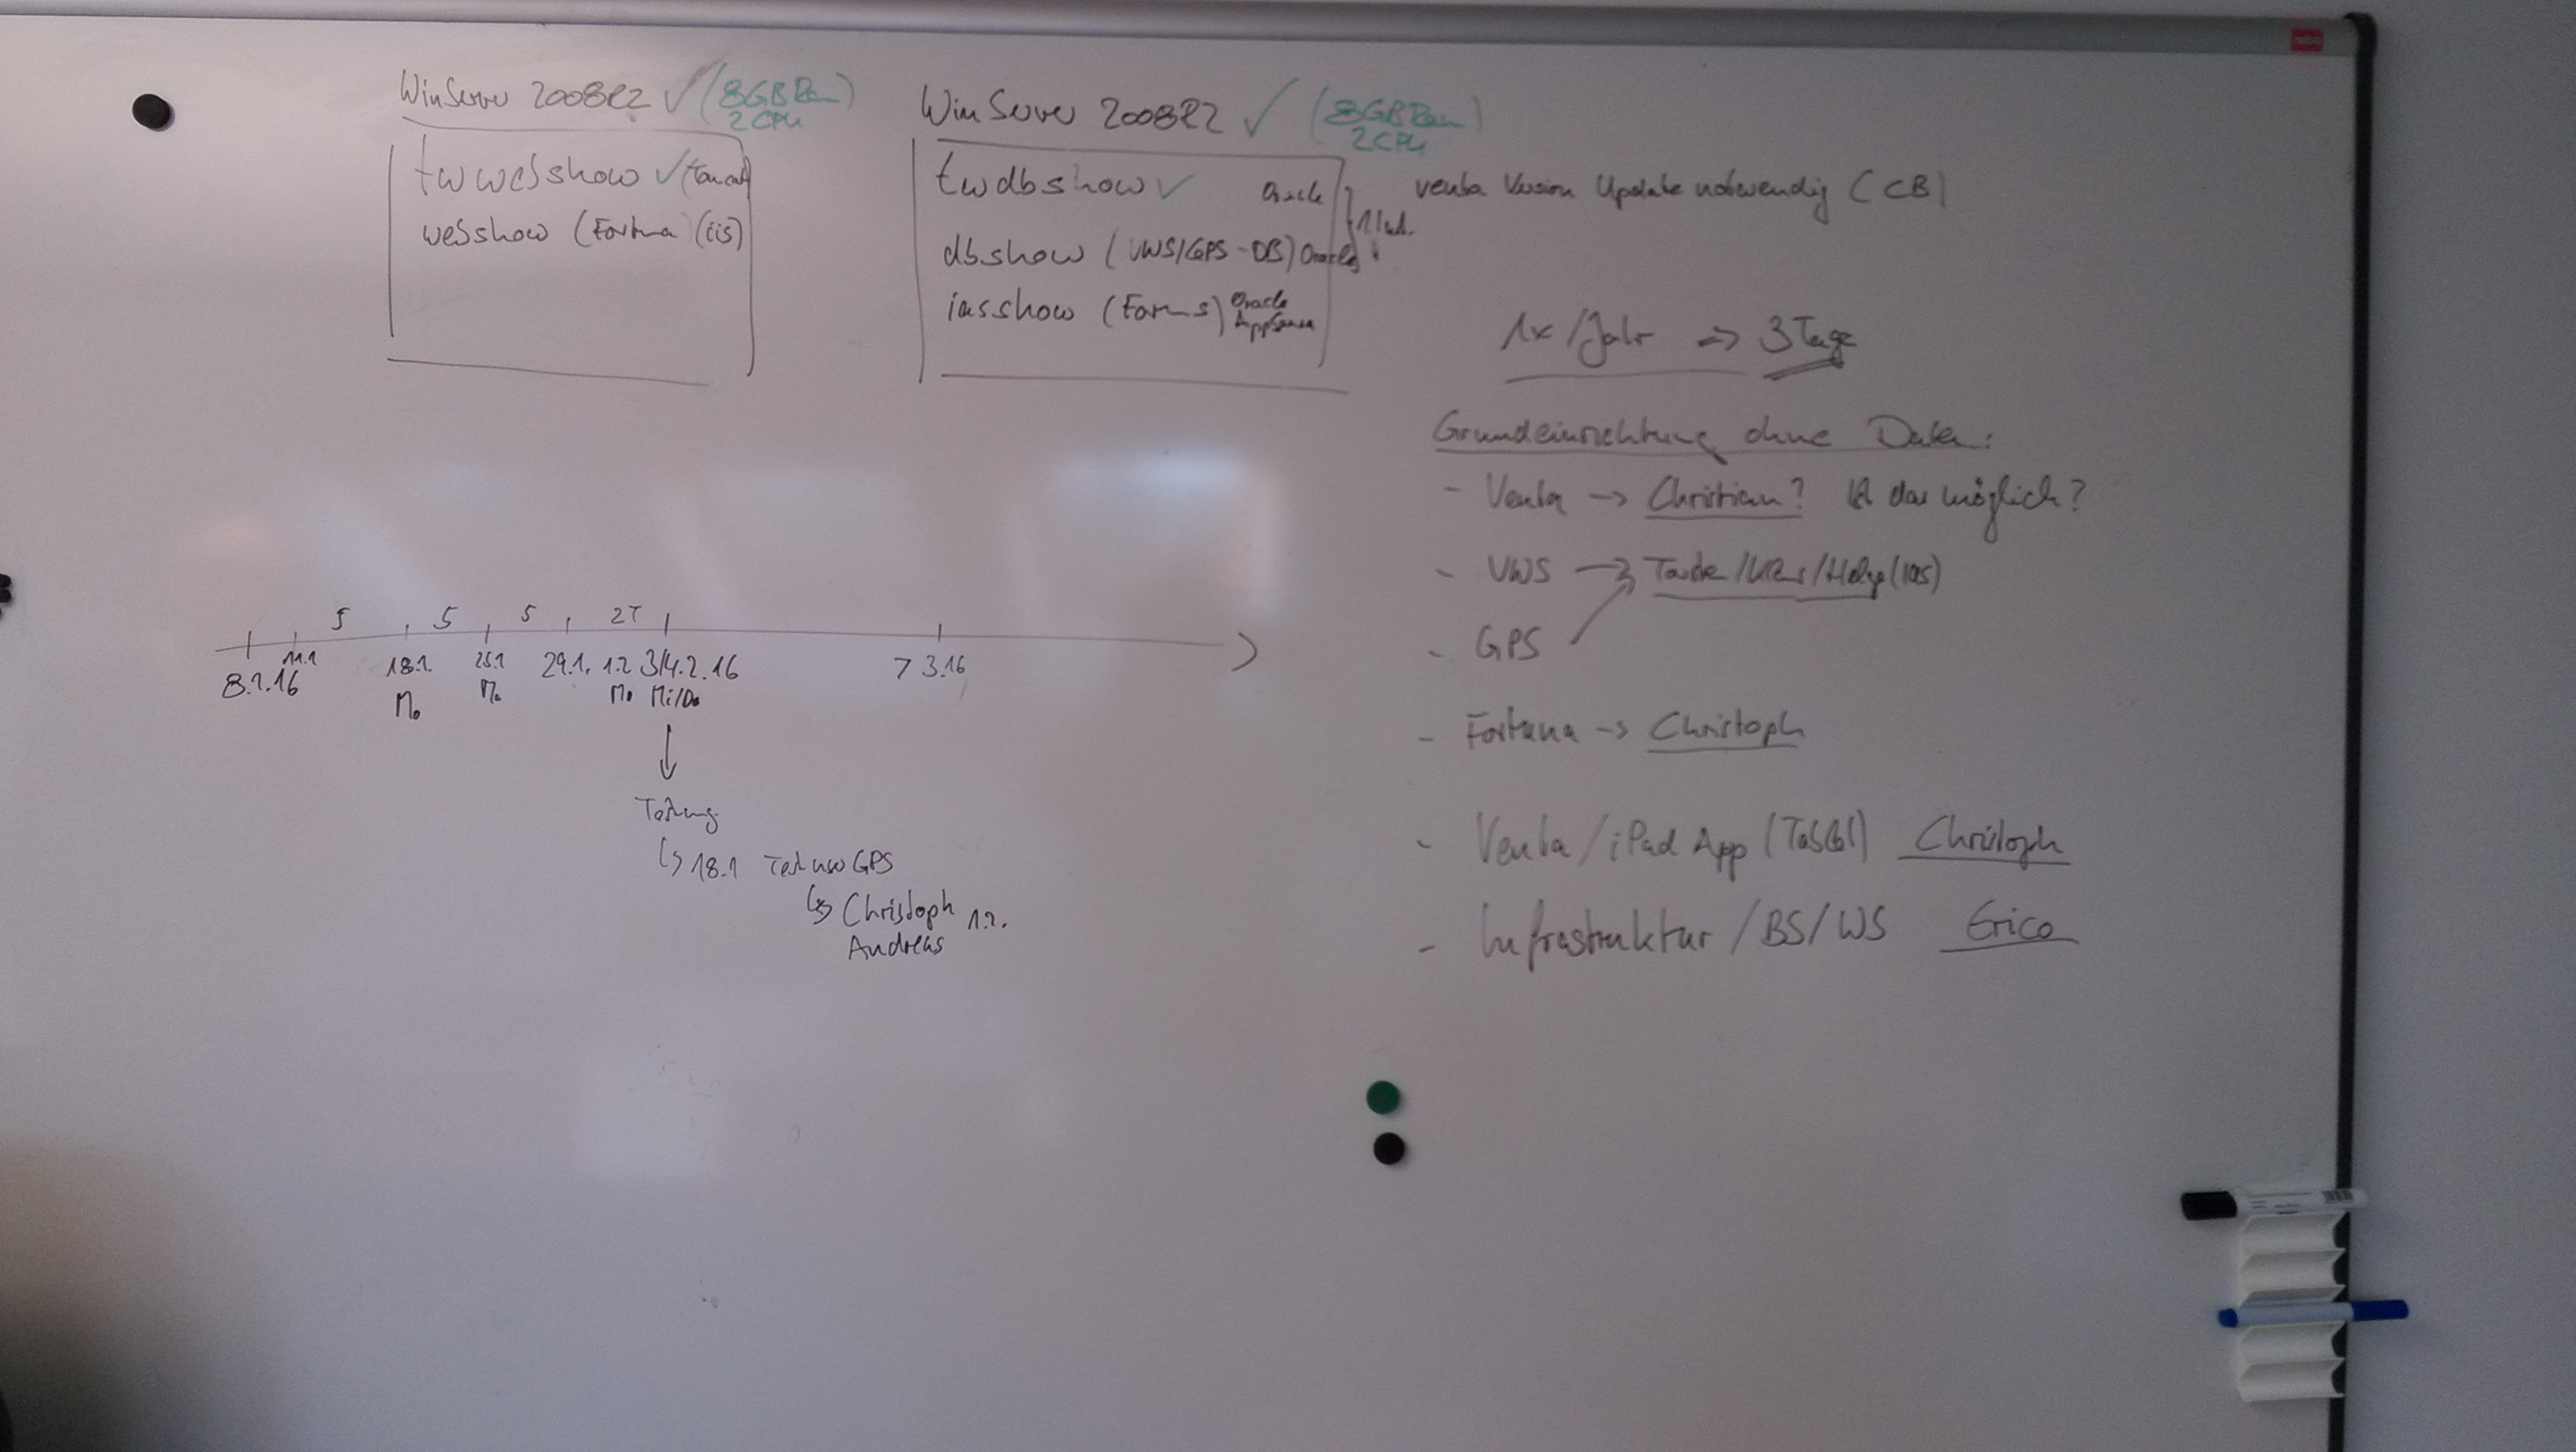 WinServer 2008R2 ✓ (8GB Ram)
2 CPU
twwebshow ✓ (Tomcat)
webshow (Fortuna) (iis)
WinServer 2008R2 ✓ (8GB Ram)
2 CPU
twdbshow ✓ Oracle
dbshow (VWS/GPS-DB) Oracle
iasshow (Forms) Oracle
AppServer
venta Version Update notwendig (CB)
1x/Jahr => 3 Tage
Grundeinrichtung ohne Daten:
- Venta -> Christian? Ist das möglich?
- VWS -> /Helge (ias)
- GPS
- Fortuna -> Christoph
- Venta/iPad App Christoph
- Infrastruktur/BS/WS Erico
5 5 5 2T
8.1.16 11.1 18.1. 25.1 29.1. 1.2 3/4.2.16 7 3.16
Mo Mo Mo Mi/Do
Testung
18.1 GPS
Christoph 1.2.
Andreas